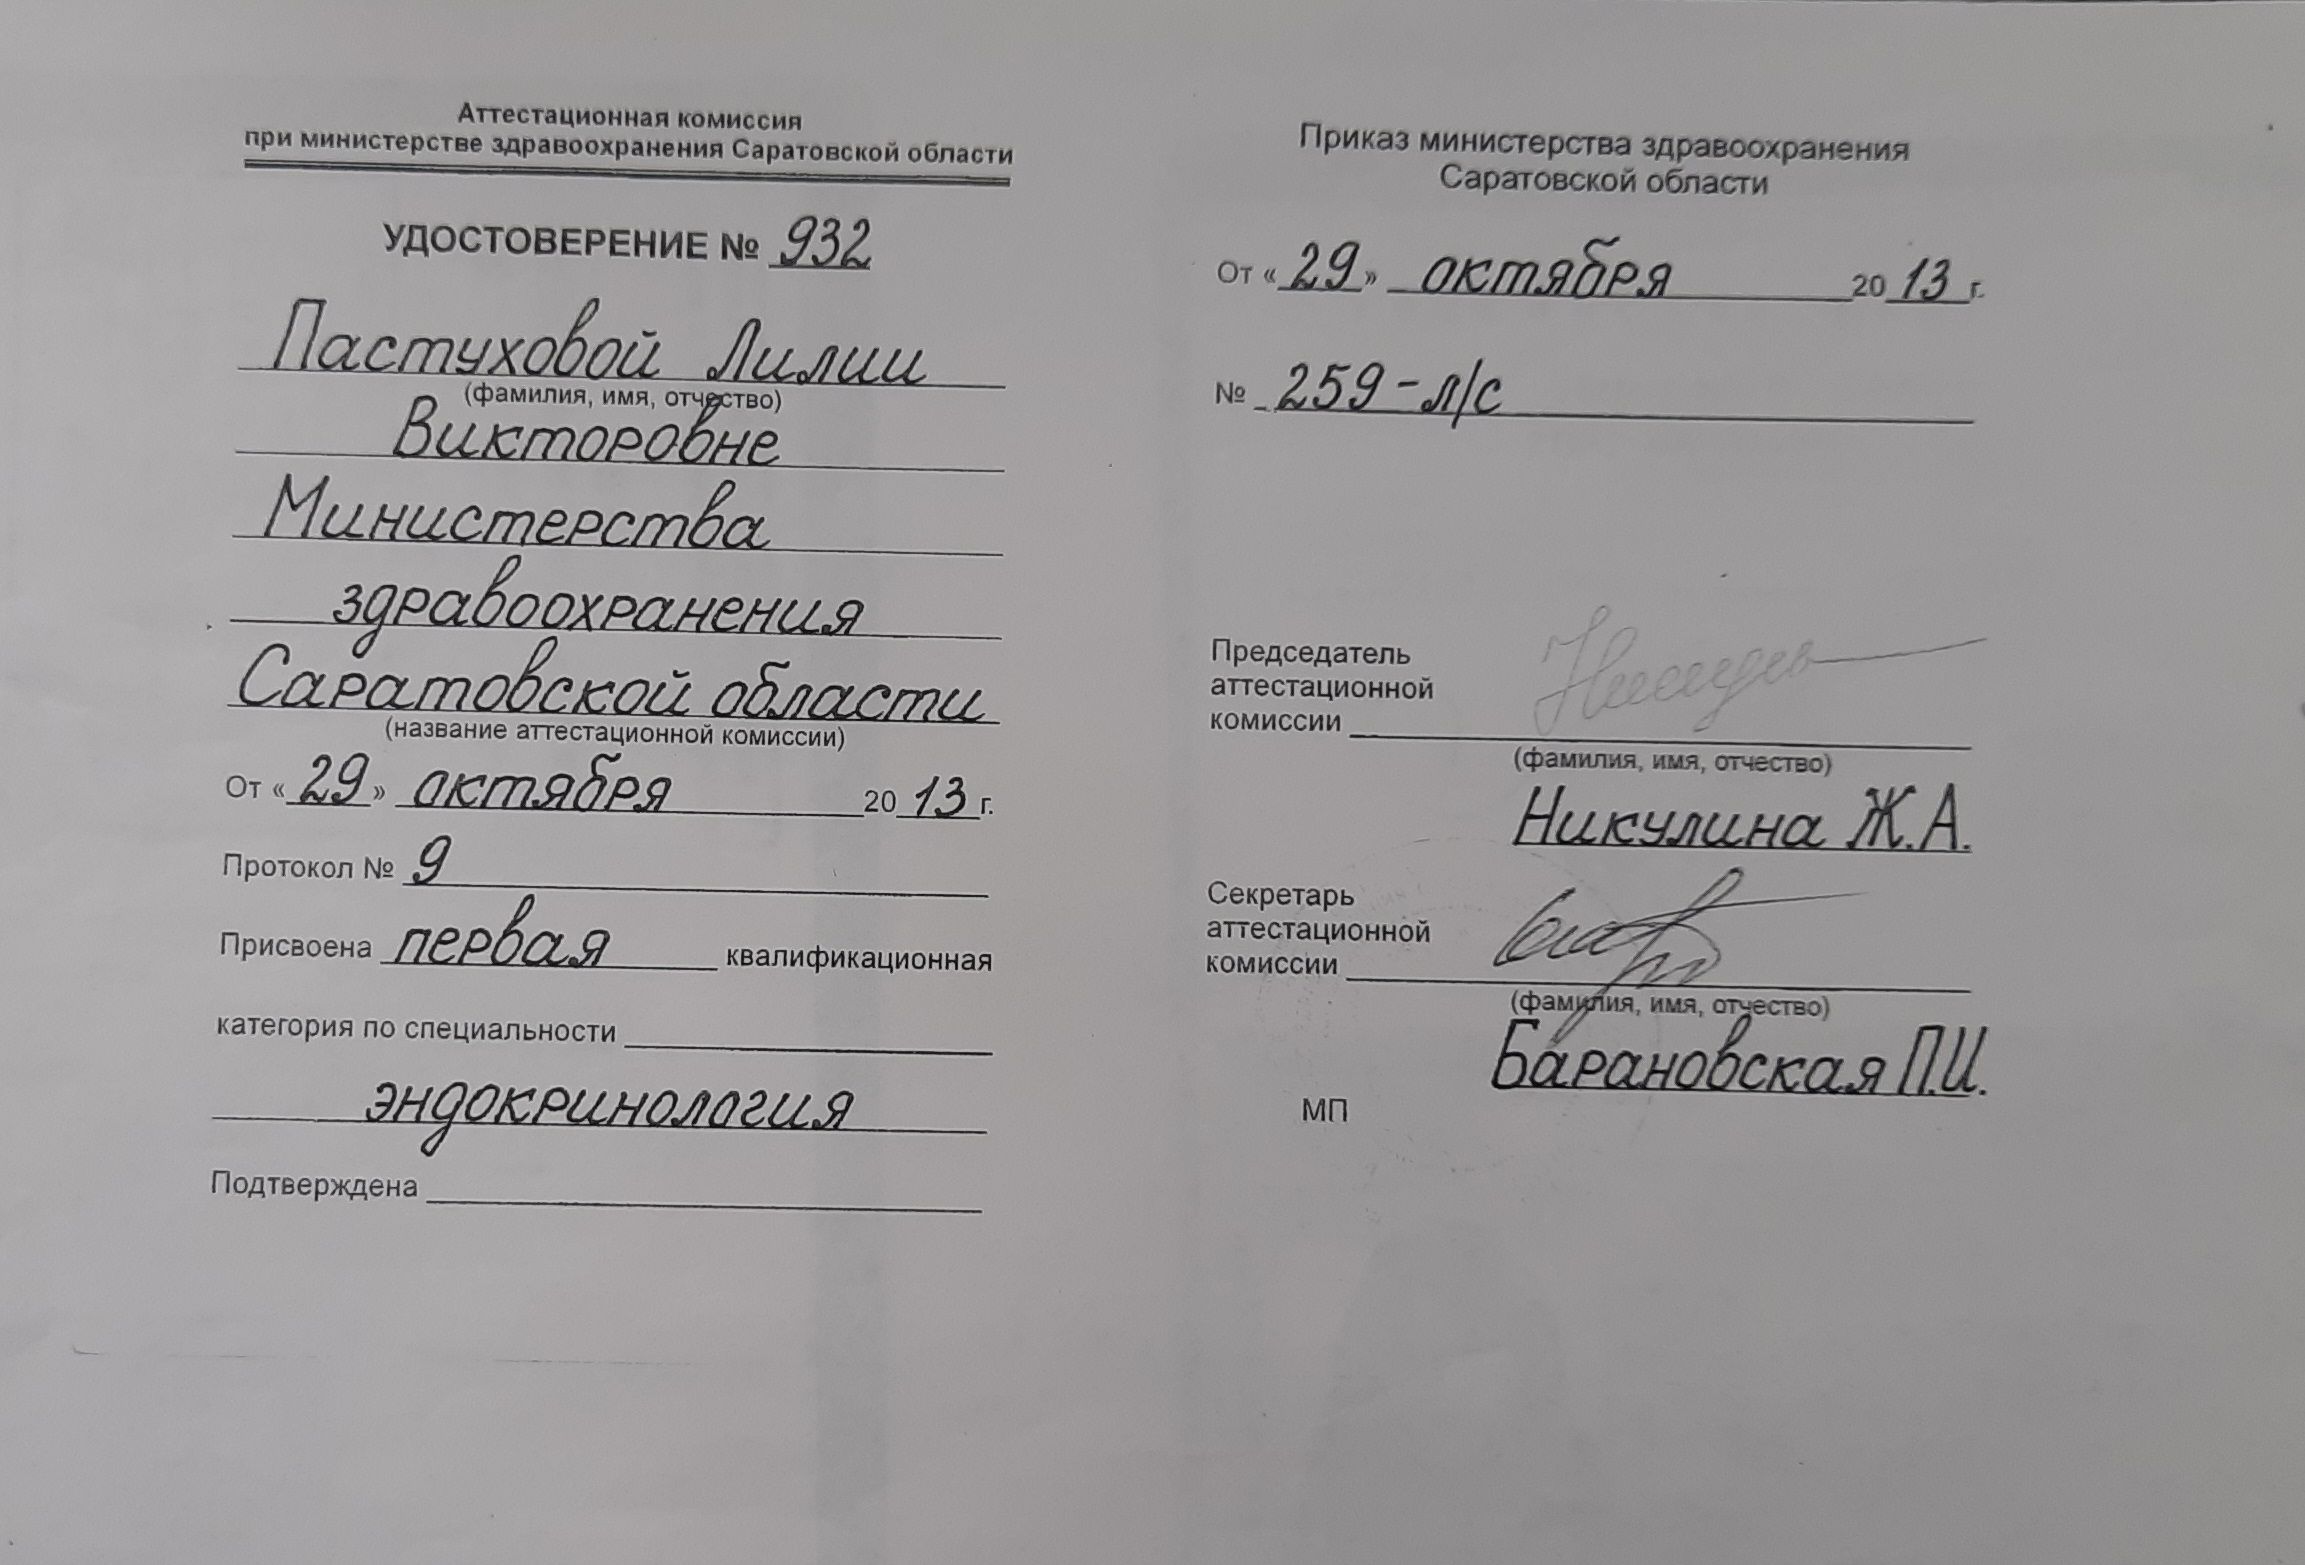 Аттестационная комиссия
при министерстве здравоохранения Саратовской области
УДОСТОВЕРЕНИЕ № 932
Пастуховой Лилии
(фамилия, имя, отчество)
Викторовне
Министерства
здравоохранения
Саратовской области
(название аттестационной комиссии)
От « 29 » октября 20 13 г.
Протокол № 9
Присвоена первая квалификационная
категория по специальности
эндокринология
Подтверждена
Приказ министерства здравоохранения
Саратовской области
От « 29 » октября 20 13 г.
№ 259-л/с
Председатель
аттестационной
комиссии
(фамилия, имя, отчество)
Никулина Ж.А.
Секретарь
аттестационной
комиссии
(фамилия, имя, отчество)
Барановская П.И.
МП